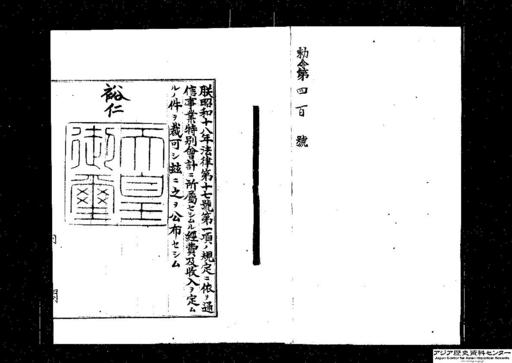 勅令第四百號
朕昭和十八年法律第十七號第一項ノ規定ニ依ル通
信事業特別會計ニ所屬セシムル經費及收入ヲ定ム
ルノ件ヲ裁可シ茲ニ之ヲ公布セシム
裕仁
天皇
御璽
アジア歴史資料センター
Japan Center for Asian Historical Records